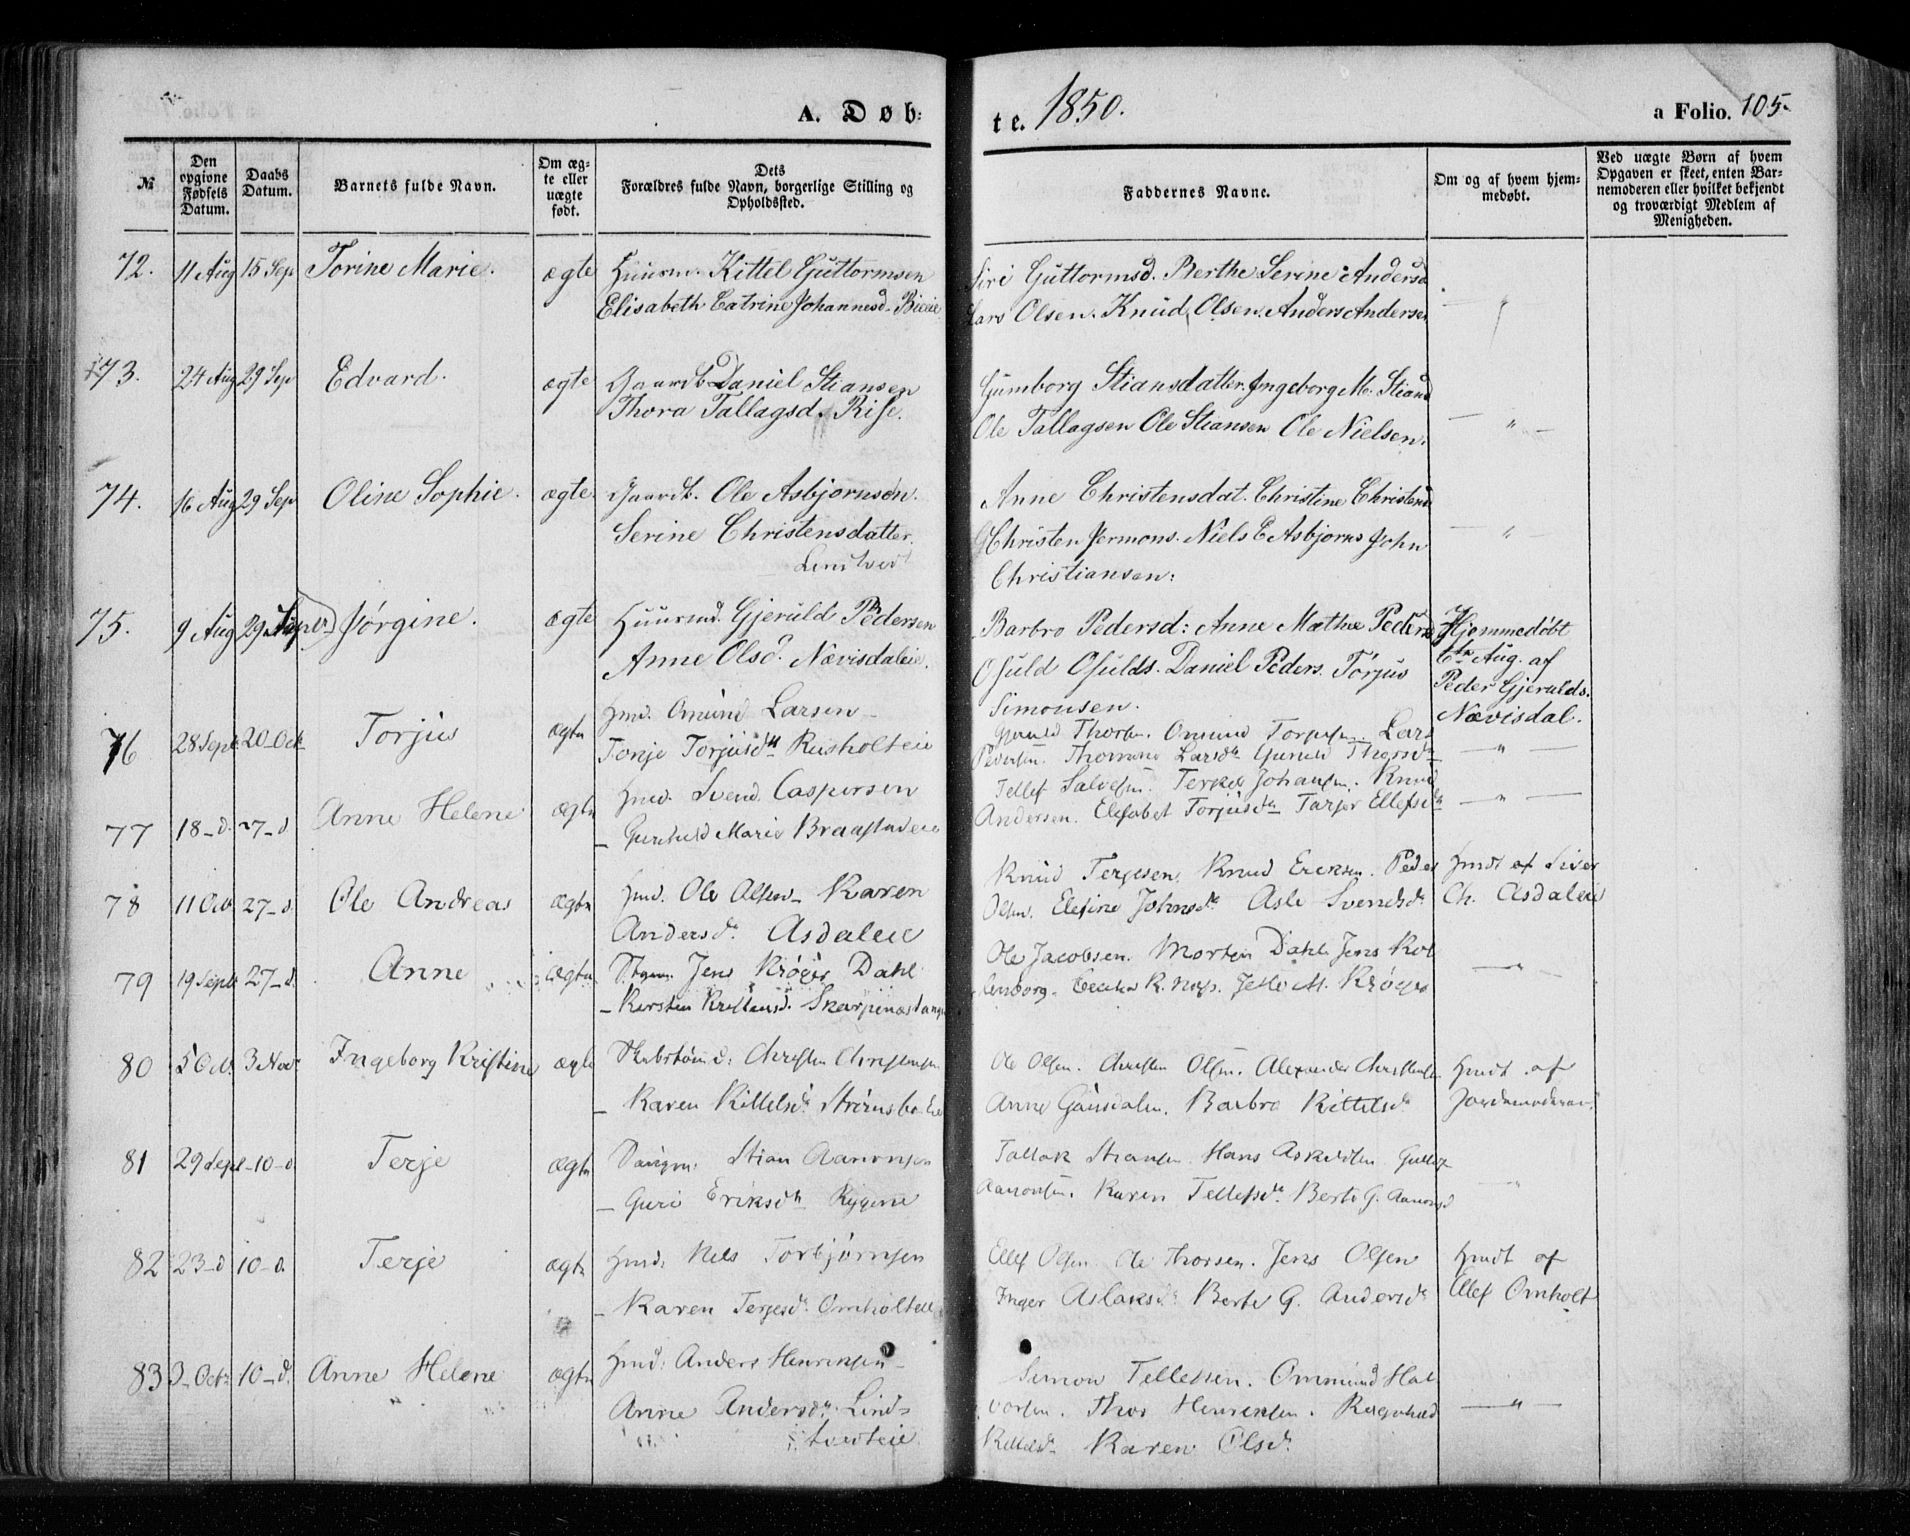 A. Døb:
te. 1850.
a Folio. 105.
№
Den opgivne Fødsels Datum.
Daabs Datum.
Barnets fulde Navn.
Om ægte eller uægte født.
Dets Forældres fulde Navn, borgerlige Stilling og Opholdssted.
Faddernes Navne.
Om og af hvem hjemmedøbt.
Ved uægte Børn af hvem Opgaven er skeet, enten Barnemoderen eller hvilket bekjendt og troværdigt Medlem af Menigheden.
72. 11 Aug 15 Sep Torine Marie. ægte Huusm. Kittel Guttormsen
Elisabeth Catrine Johannesd.
Siri Guttormsd. Berthe Serine Andersd
Lars Olsen. Knud Olsen. Anders Andersen
"
73. 24 Aug 29 Sep Edvard. ægte Gaardb. Daniel Stiansen
Thora Tallagsd. Rise.
Gumborg Stiansdatter. Ingeborg M. Stiansd
Ole Tallagsen Ole Stiansen Ole Nielsen.
— " —
74. 16 Aug 29 Sep Oline Sophie. ægte. Gaardb. Ole Asbjornsen.
Serine Christensdatter.
Lindtvedt
Anne Christensdat. Christine Christensd
Christen Jermons. Niels E Asbjorns John
Christiansen:
— " —
75. 9 Aug 29 Jørgine. ægte Huusmd. Gjeruld Pedersen
Anne Olsd. Nævisdaleie.
Barbro Pedersd: Anne Mathea Pedersd
Osuld Osulds. Daniel Peders. Torjus
Simonsen.
Hjemmedøbt
Aug. af
Peder Gjerulds.
Nævisdal.
76 28 Sept 20 Oct Torjus ægte Hmd. Omund Larsen –
Tonje Torjusd. Rusholteie
Gjeruld Thors. Omund Lars
Pedersen. Larsd. Gunild Thorsd
— " —
77 18 – d. 27 – d Anne Helene ægte Hmd. Svend Caspersen
– Gunhild Marie
Tellef Salvesen. Terkel Johansen. Knud
Andersen. Elisabet Torjusd. Tarjer Ellefsd
— " —
78 11 Oct 27 – d. Ole Andreas ægte Hmd. Ole Olsen – Karen
Andersd. Asdaleie
Knud Terjesen. Knud Ericksen. Peder
Olsen. Elesine Johnsd. Asle Svendsd.
Hmdt af Siver
Ch. Asdaleie
79 19 Sept 27 – d. Anne ægte Jens Krøger Dahl
– Kirsten Kristensd. Skarpenæstangen
Ole Jacobsen. Morten Dahl. Jens Kol
M. Krøger
— " —
80 5 Oct. 3 Nov Ingeborg Kristine ægte Christen Christensen
– Karen Kittelsd.
Ole Olsen. Christen Olsen. Alexander Christensen
Anne Barbro Kittelsd.
Hmdt af
Jordemoderen
81 29 Sept – 10 – d Terje ægte Stian Aanonsen
– Guri Eriksd. Rygene
Tallak Stiansen. Hans
Aanonsen. Karen Tellefsd. Berte G. Aanonsd
"
82 23 – d 10 – d. Terje ægte Hmd. Nels Torbjørnsen
– Karen Terjesd. Omholteie
Ellef Olsen. Ole Thorsen. Jens Olsen
Inger Aslaksd. Berte G. Andersd.
Hmdt af
Ellef Omholt
83 3 – Octr 10 – d. Anne Helene ægte Hmd: Anders Henriksen –
Anne Andersd. Lind-
tvedteie
Simon Tellefsen. Ommund Hal
vorsen. Thor Henriksen. Ragnhild
Kittelsd. Karen Olsd.
— " —